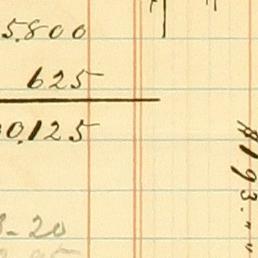 5.800
625
0.125
3-20
$193."